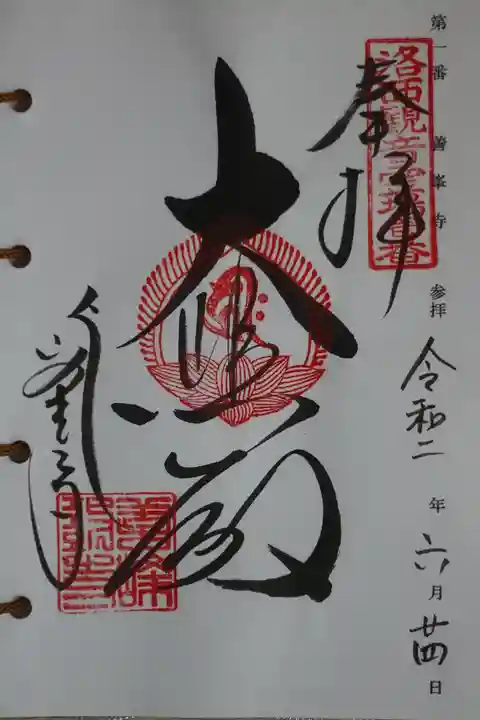 第一番 善峯寺 参拝 令和二年六月廿四日
奉拝
洛西観音霊場第一番
大悲殿
善峯寺